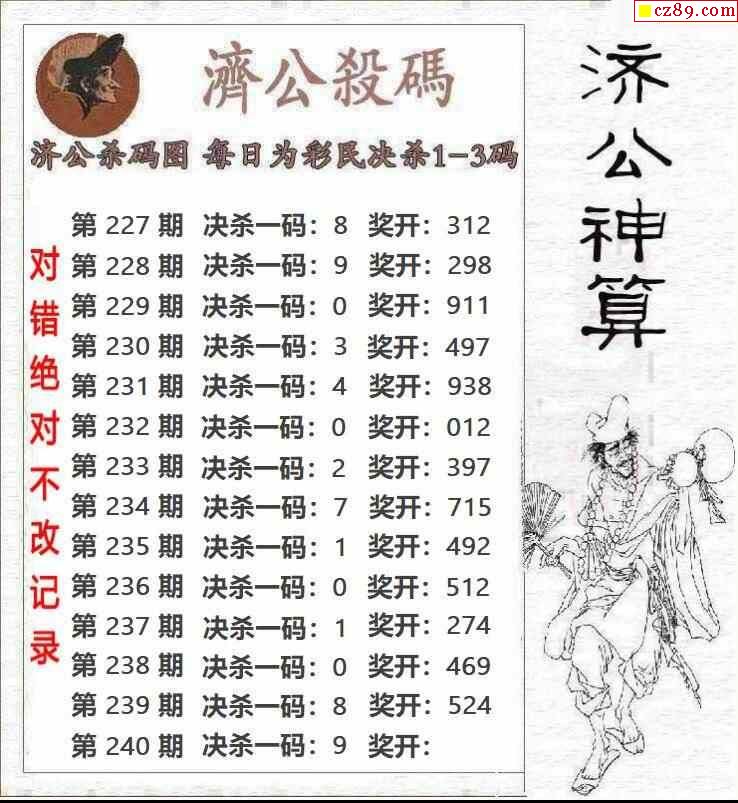 cz89.com
濟公殺碼
济公杀码图 每日为彩民决杀1-3码
第 227 期 决杀一码：8 奖开：312
第 228 期 决杀一码：9 奖开：298
第 229 期 决杀一码：0 奖开：911
第 230 期 决杀一码：3 奖开：497
第 231 期 决杀一码：4 奖开：938
第 232 期 决杀一码：0 奖开：012
第 233 期 决杀一码：2 奖开：397
第 234 期 决杀一码：7 奖开：715
第 235 期 决杀一码：1 奖开：492
第 236 期 决杀一码：0 奖开：512
第 237 期 决杀一码：1 奖开：274
第 238 期 决杀一码：0 奖开：469
第 239 期 决杀一码：8 奖开：524
第 240 期 决杀一码：9 奖开：
对错绝对不改记录
济公神算